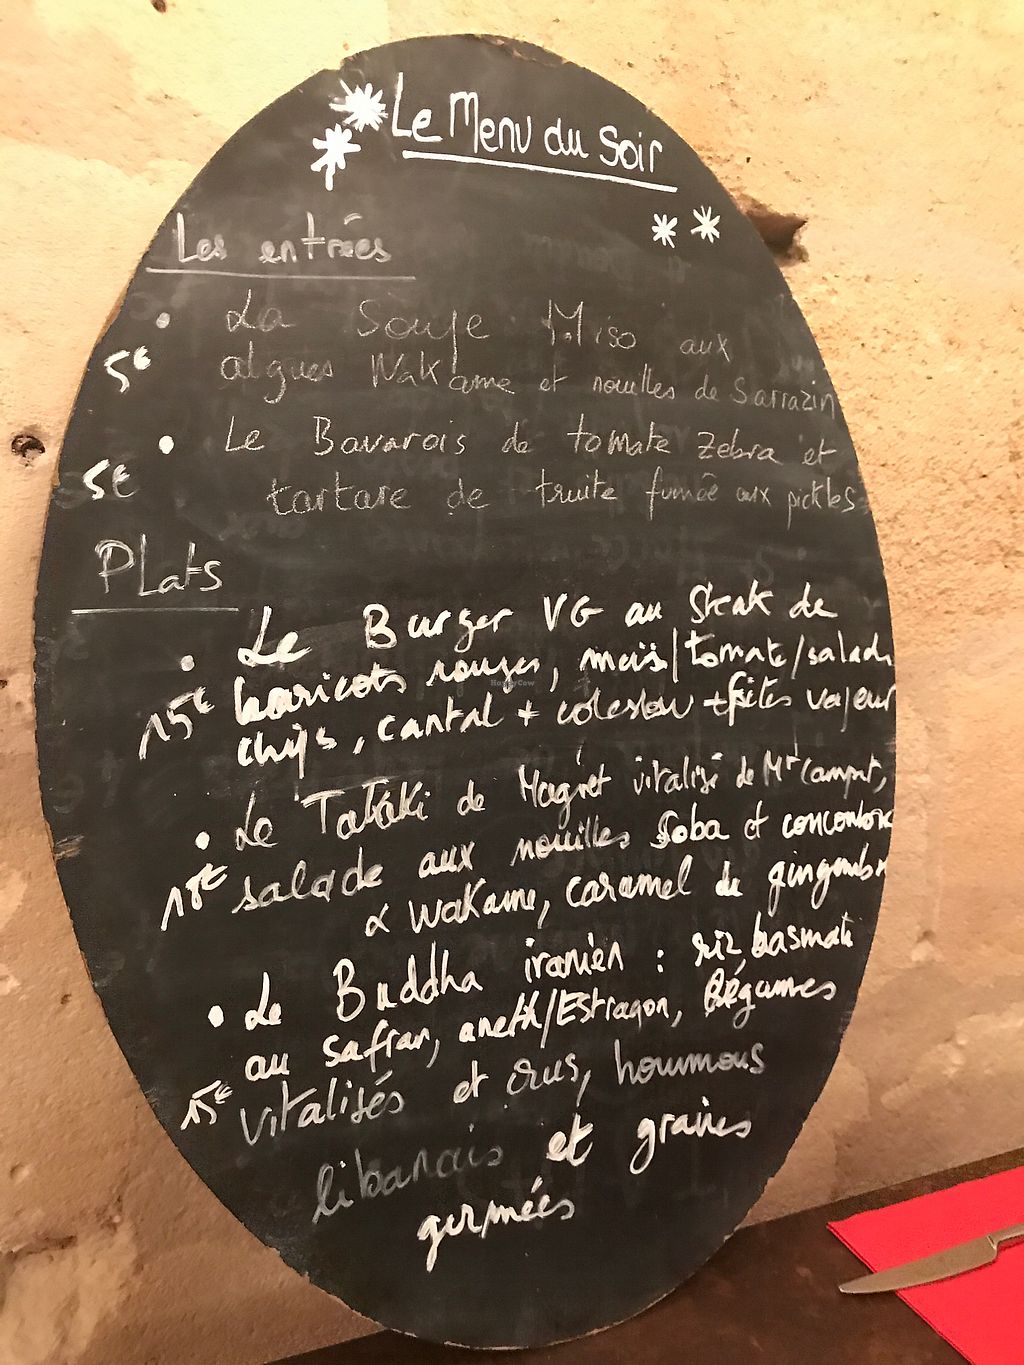 Le Menu du Soir
Les entrées
La Soupe Miso aux
5€ algues Wakame et nouilles de Sarrazin
Le Bavarois de tomate zebra et
5€ tartare de truite fumée aux pickles
PLats
Le Burger VG au Steak de
15€ haricots rouges, maïs/tomate/salade,
chips, cantal + coleslow + frites vapeur
Le Tataki de Magret vitalisé de Mr
18€ salade aux nouilles Soba et concombre
& wakame, caramel de gingembre
Le Buddha iranien : riz basmati
au safran, aneth/Estragon, légumes
15€ vitalisés et crus, houmous
libanais et graines
germées
HappyCow